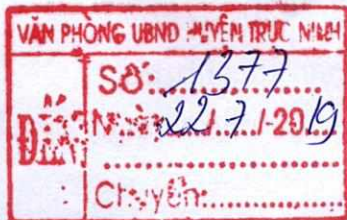 VĂN PHÒNG UBND HUYỆN TRỰC NINH
ĐẾN
Số: 1377
Ngày: 22/7/-2019
Chuyển: